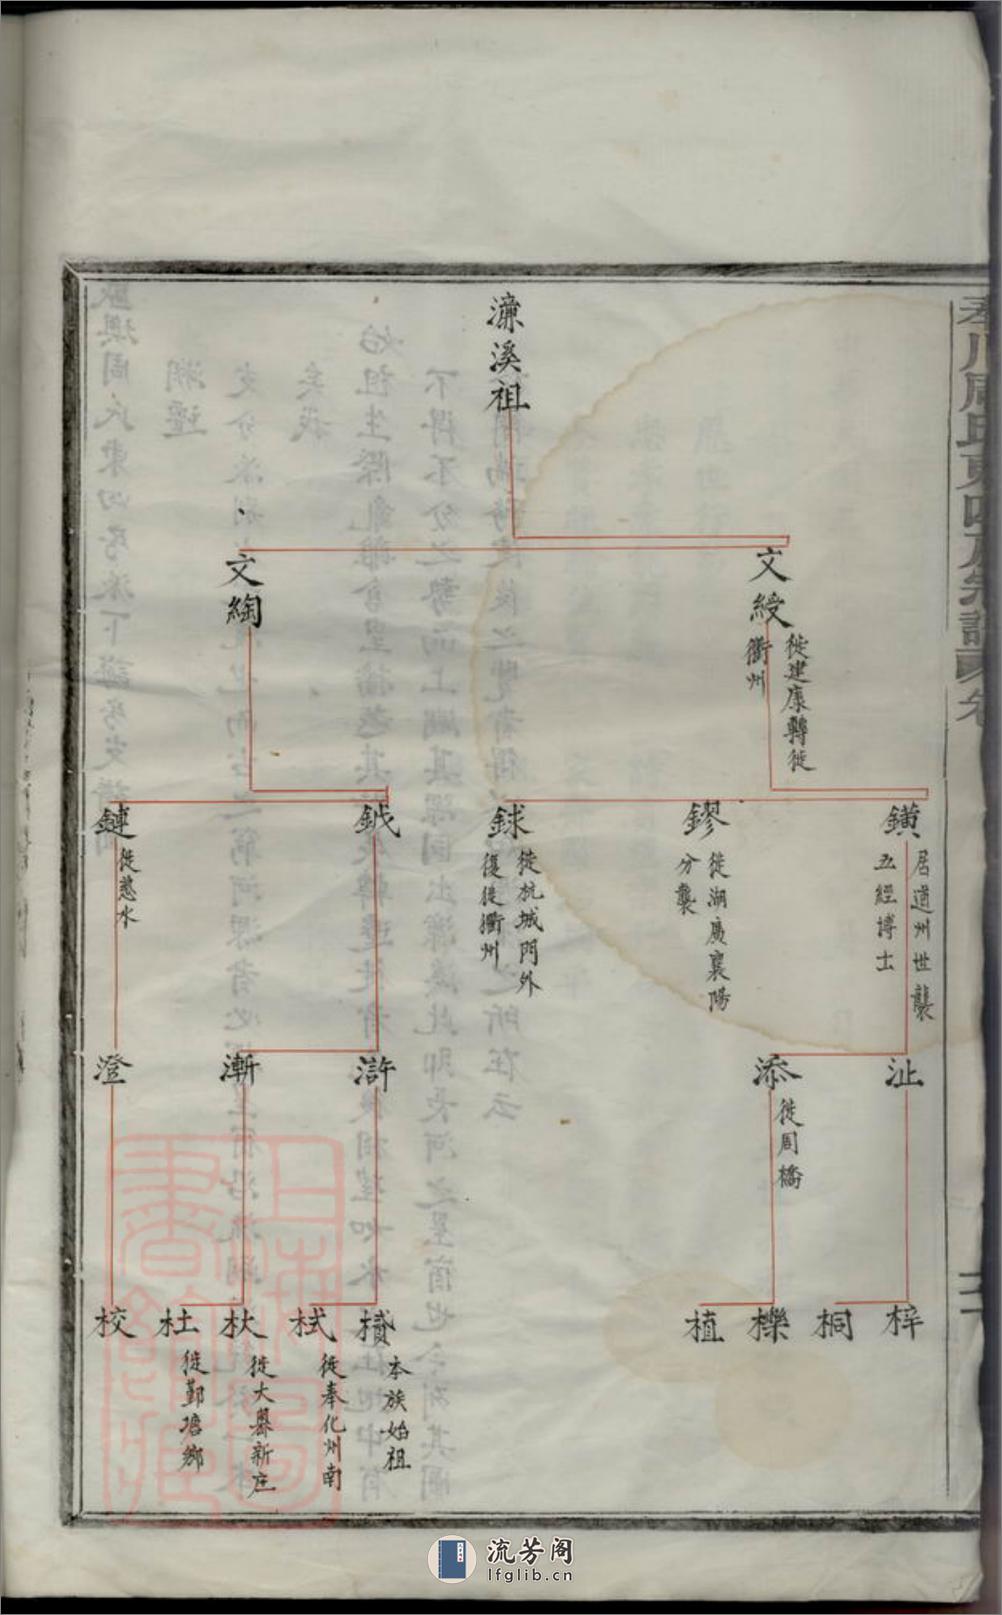 濂溪祖
文綬
徙建康轉徙
衢州
文綯
鐄
居道州世襲
五經博士
鏐
徙湖廣襄陽
分襲
銶
徙杭城門外
復徙衢州
鉞
鏈
徙慈水
沚
添
徙周橋
滸
漸
澄
梓
桐
櫟
植
樻
本族始祖
栻
徙奉化州南
杕
徙大嶴新庄
杜
徙鄞塘鄉
校
流芳阁
lfglib.cn